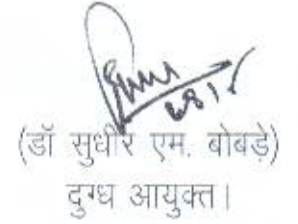 (डॉ सुधीर एम. बोबड़े)
दुग्ध आयुक्त।